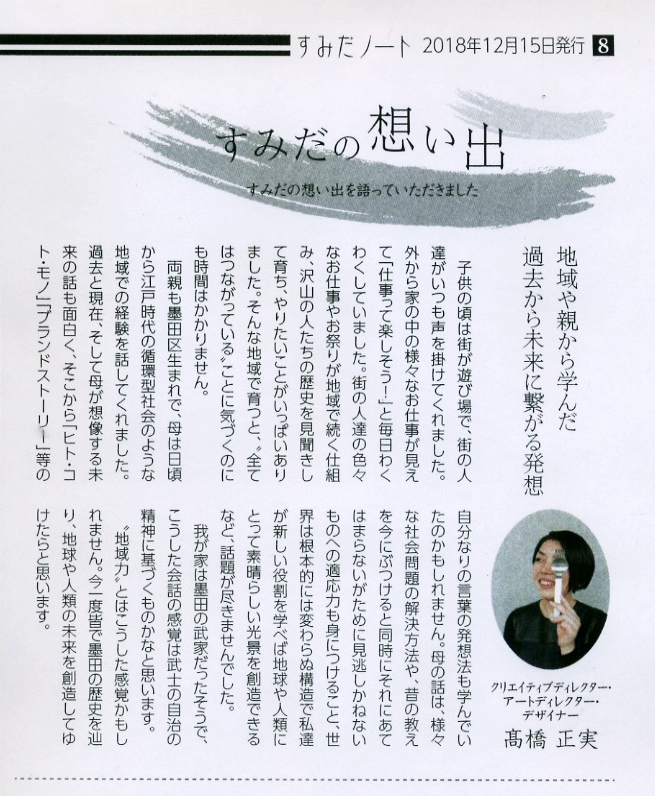 すみだノート 2018年12月15日発行 8
すみだの想い出
すみだの想い出を語っていただきました
地域や親から学んだ
過去から未来に繋がる発想
子供の頃は街が遊び場で、街の人
達がいつも声を掛けてくれました。
外から家の中の様々なお仕事が見え
て「仕事って楽しそう!」と毎日わく
わくしていました。街の人達の色々
なお仕事やお祭りが地域で続く仕組
み、沢山の人たちの歴史を見聞きし
て育ち、やりたいことがいっぱいあり
ました。そんな地域で育つと、“全て
はつながっている”ことに気づくのに
も時間はかかりません。
両親も墨田区生まれで、母は日頃
から江戸時代の循環型社会のような
地域での経験を話してくれました。
過去と現在、そして母が想像する未
来の話も面白く、そこから「ヒト・コ
ト・モノ」「ブランドストーリー」等の
自分なりの言葉の発想法も学んでい
たのかもしれません。母の話は、様々
な社会問題の解決方法や、昔の教え
を今にぶつけると同時にそれにあて
はまらないがために見逃しかねない
ものへの適応力も身につけること、世
界は根本的には変わらぬ構造で私達
が新しい役割を学べば地球や人類に
とって素晴らしい光景を創造できる
など、話題が尽きませんでした。
我が家は墨田の武家だったそうで、
こうした会話の感覚は武士の自治の
精神に基づくものかなと思います。
“地域力”とはこうした感覚かもし
れません。今一度皆で墨田の歴史を辿
り、地球や人類の未来を創造してゆ
けたらと思います。
クリエイティブディレクター・
アートディレクター・
デザイナー
髙橋 正実